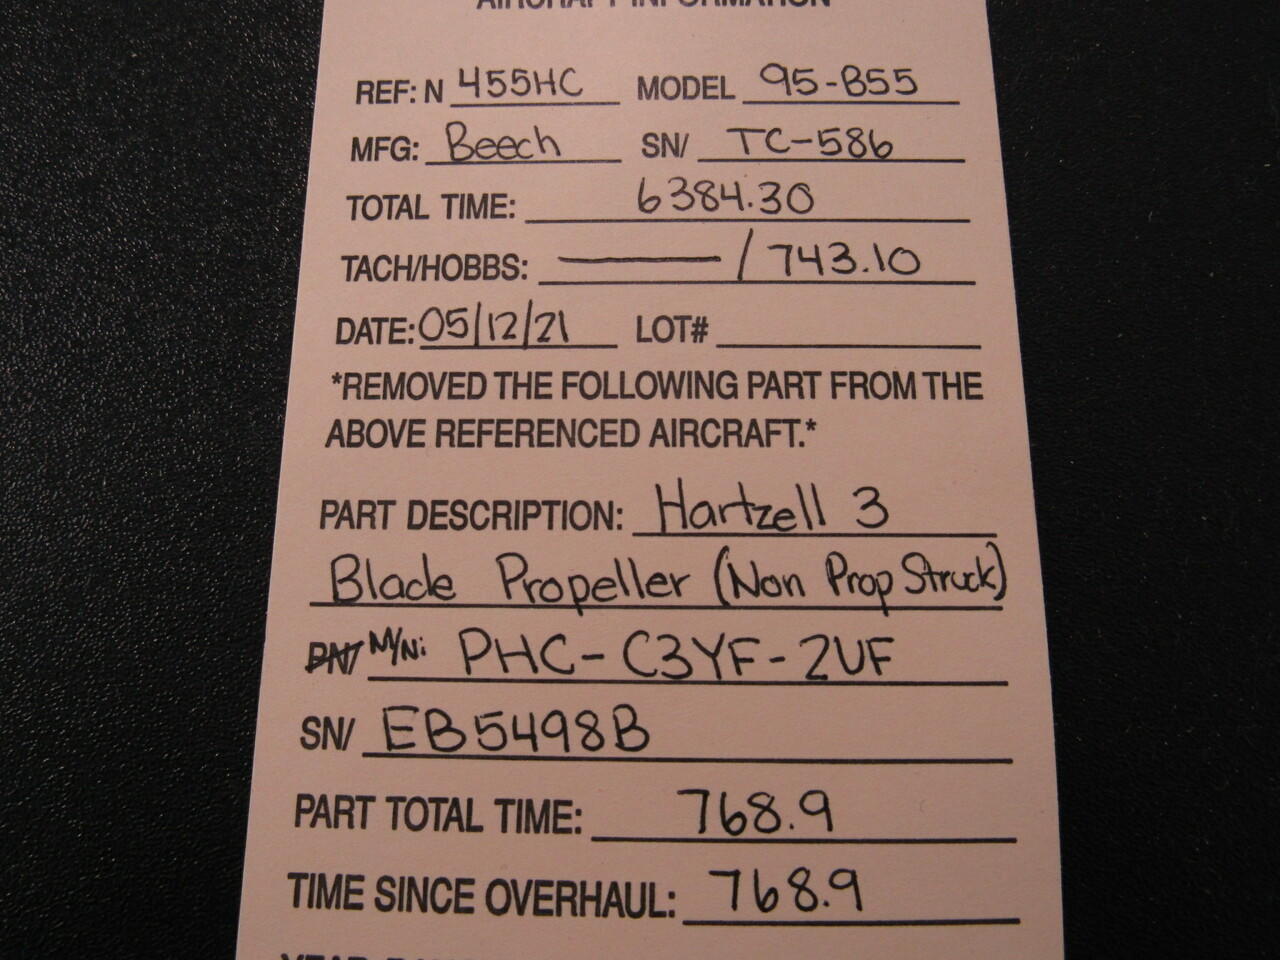 AIRCRAFT INFORMATION
REF: N 455HC MODEL 95-B55
MFG: Beech SN/ TC-586
TOTAL TIME: 6384.30
TACH/HOBBS: —— / 743.10
DATE: 05/12/21 LOT#
*REMOVED THE FOLLOWING PART FROM THE
ABOVE REFERENCED AIRCRAFT.*
PART DESCRIPTION: Hartzell 3
Blade Propeller (Non Prop Struck)
PN/ M/N: PHC-C3YF-2UF
SN/ EB5498B
PART TOTAL TIME: 768.9
TIME SINCE OVERHAUL: 768.9